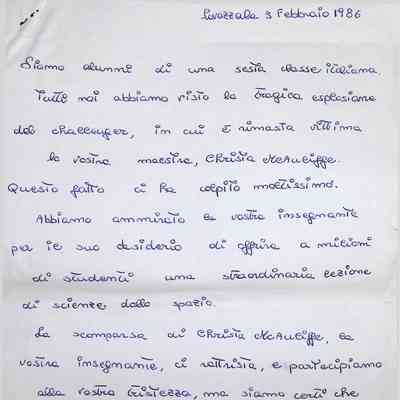 3 Febbraio 1986
Siamo alunni di una sesta classe italiana.
Tutti noi abbiamo visto la tragica esplosione
del challenger, in cui è rimasta vittima
la vostra maestra, Christa McAuliffe.
Questo fatto ci ha colpito moltissimo.
Abbiamo ammirato la vostra insegnante
per il suo desiderio di offrire a milioni
di studenti una straordinaria lezione
di scienze dallo spazio.
La scomparsa di Christa McAuliffe, la
vostra insegnante, ci rattrista, e partecipiamo
alla vostra tristezza, ma siamo certi che